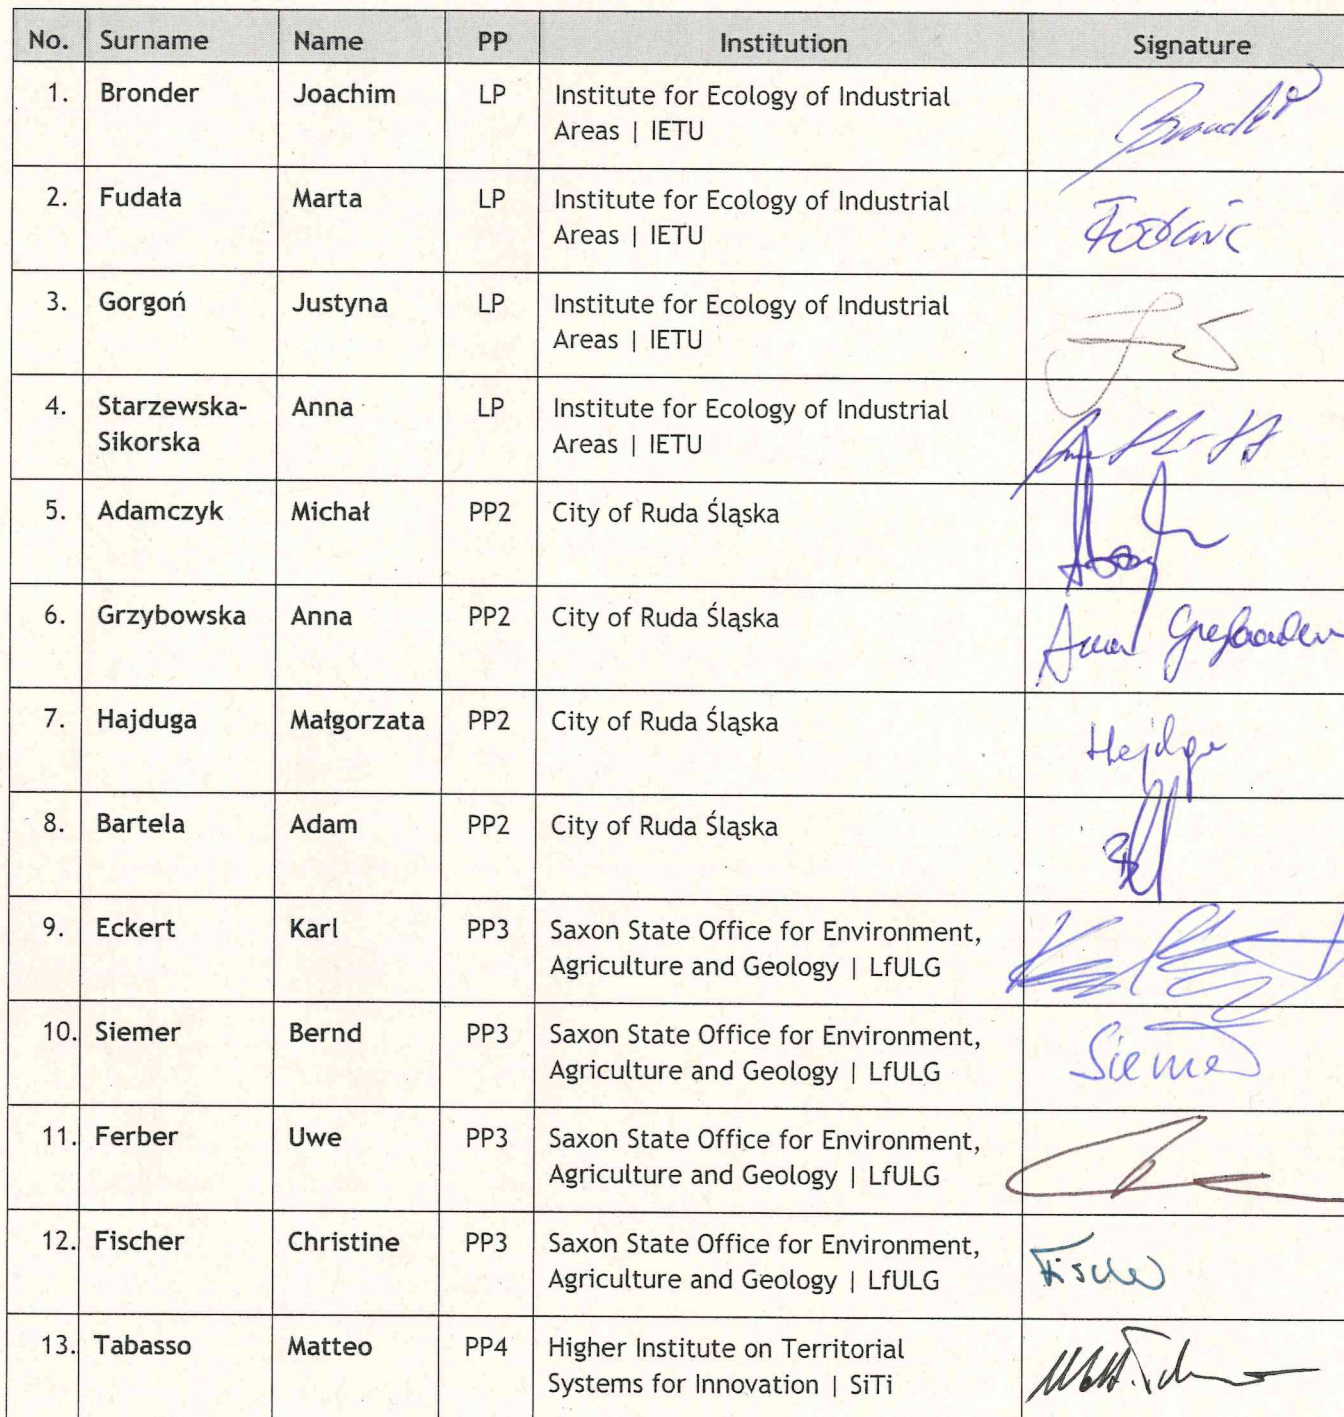 No. Surname Name PP Institution Signature
1. Bronder Joachim LP Institute for Ecology of Industrial
Areas | IETU
2. Fudała Marta LP Institute for Ecology of Industrial
Areas | IETU
3. Gorgoń Justyna LP Institute for Ecology of Industrial
Areas | IETU
4. Starzewska- Anna LP Institute for Ecology of Industrial
Sikorska Areas | IETU
5. Adamczyk Michał PP2 City of Ruda Śląska
6. Grzybowska Anna PP2 City of Ruda Śląska
Anna
7. Hajduga Małgorzata PP2 City of Ruda Śląska
8. Bartela Adam PP2 City of Ruda Śląska
9. Eckert Karl PP3 Saxon State Office for Environment,
Agriculture and Geology | LfULG
10. Siemer Bernd PP3 Saxon State Office for Environment, Siemer
Agriculture and Geology | LfULG
11. Ferber Uwe PP3 Saxon State Office for Environment,
Agriculture and Geology | LfULG
12. Fischer Christine PP3 Saxon State Office for Environment, Fischer
Agriculture and Geology | LfULG
13. Tabasso Matteo PP4 Higher Institute on Territorial
Systems for Innovation | SiTi